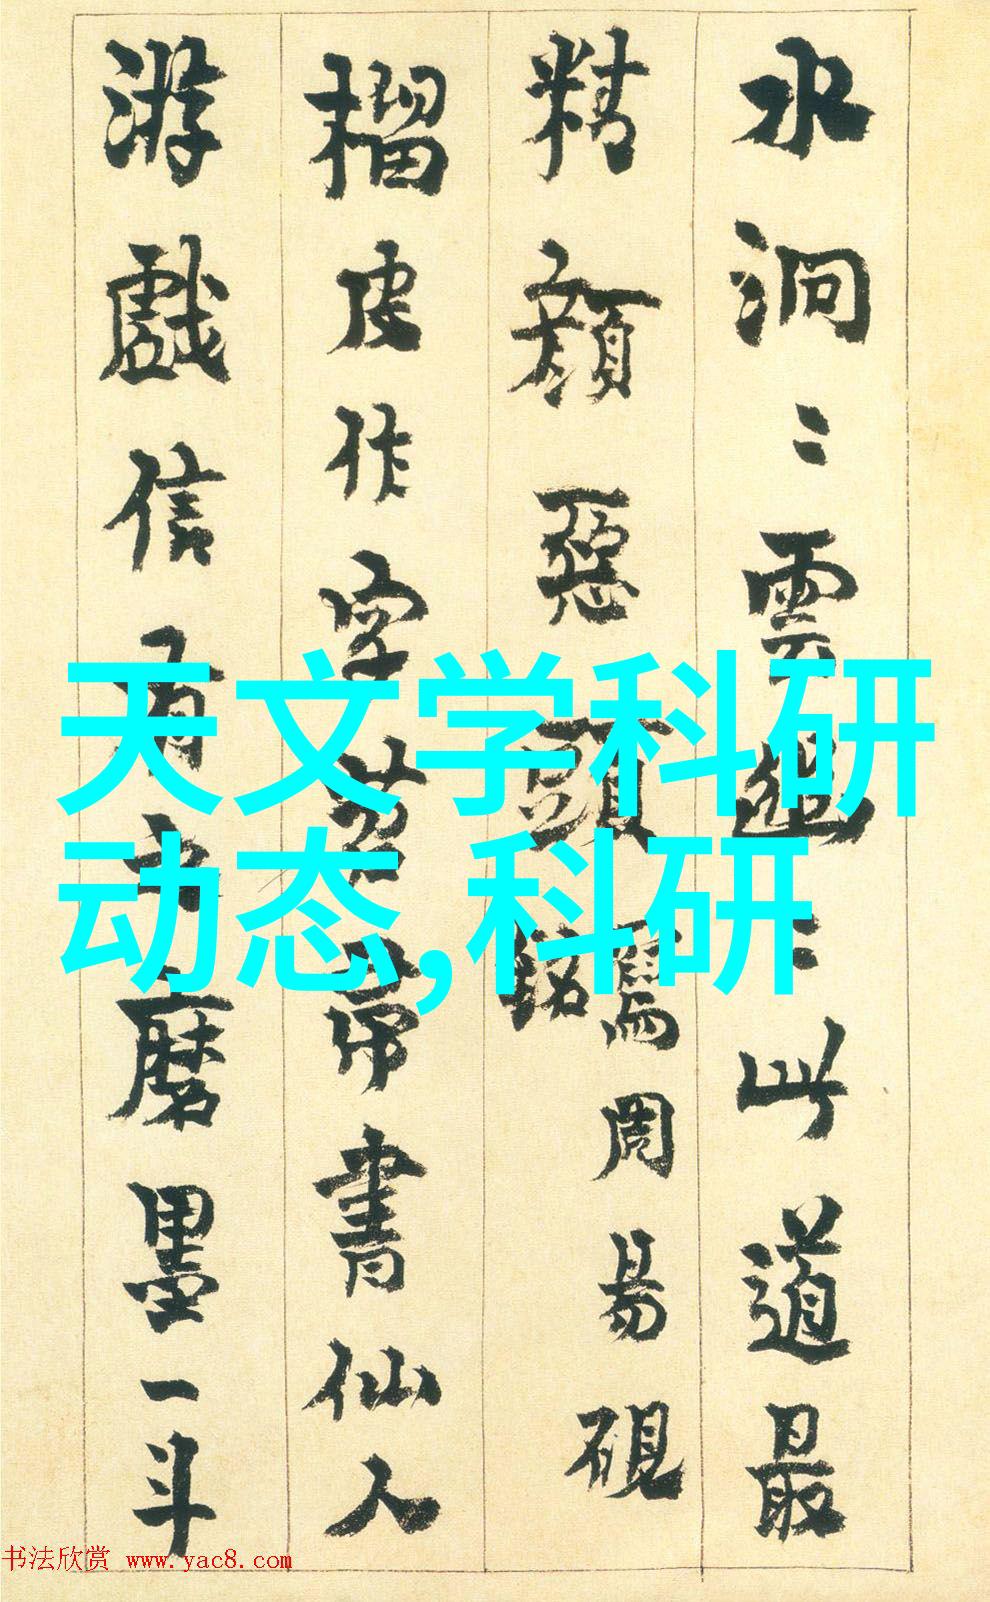 水洞〻雲邈〻此道最
精顏惡頭
銘
馬周易硯
榴皮作字
帚書仙人
游戲信有
磨墨一斗
天文学科研
动态,科研
书法欣赏 www.yac8.com